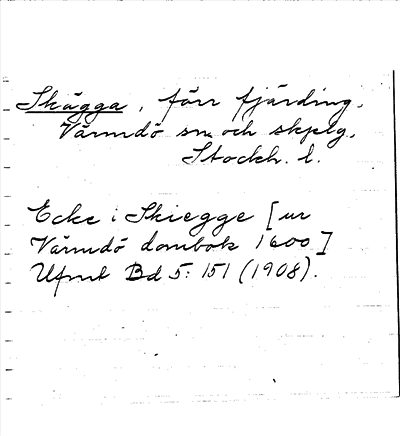 Skägga, förr fjärding,
Värmdö sn och skplg,
Stockh. l.
Ecke i Skiegge [ur
Värmdö dombok 1600]
Ufmt Bd 5: 151 (1908).